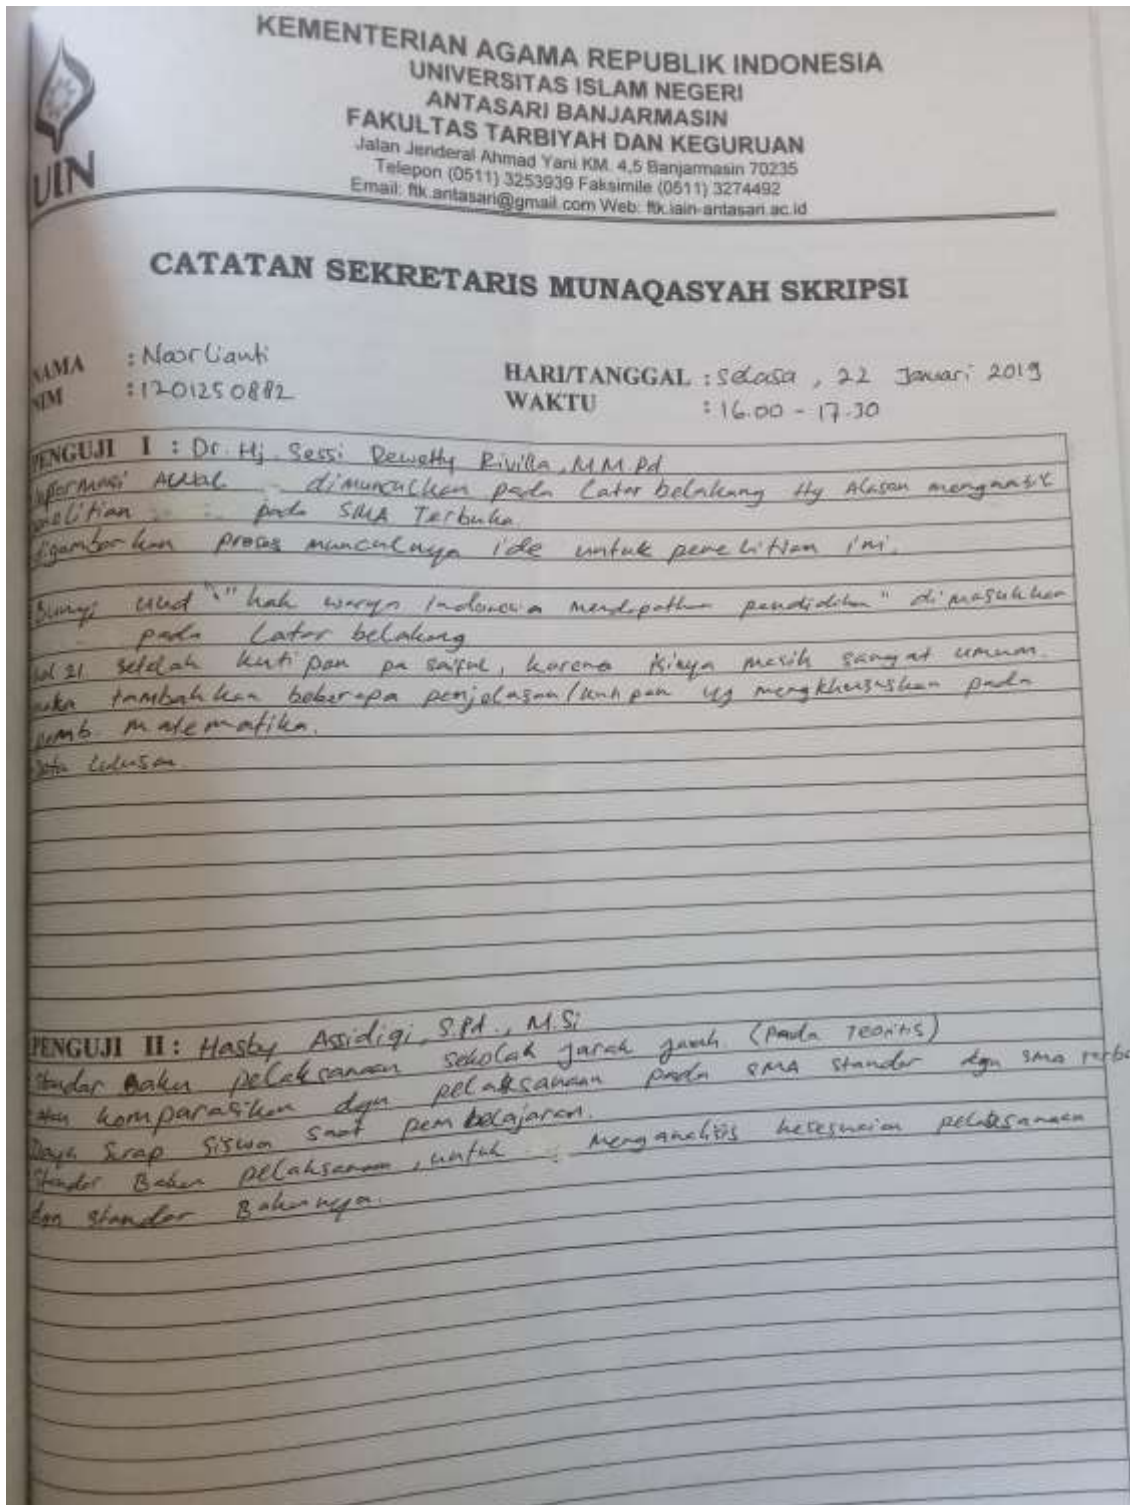 KEMENTERIAN AGAMA REPUBLIK INDONESIA
UNIVERSITAS ISLAM NEGERI
ANTASARI BANJARMASIN
FAKULTAS TARBIYAH DAN KEGURUAN
Jalan Jenderal Ahmad Yani KM. 4,5 Banjarmasin 70235
Telepon (0511) 3253939 Faksimile (0511) 3274492
Email: ftk.antasari@gmail.com Web: ftk.iain-antasari.ac.id
UIN
CATATAN SEKRETARIS MUNAQASYAH SKRIPSI
NAMA : Noorlianti
NIM : 1201250882
HARI/TANGGAL : Selasa, 22 Januari 2019
WAKTU : 16.00 - 17.30
PENGUJI I : Dr. Hj. Sessi Rewetty Rivilla, M.M.Pd
Informasi Awal dimunculkan pada Latar belakang ttg Alasan mengambil
penelitian pada SMA Terbuka.
digambarkan proses munculnya ide untuk penelitian ini.
Bunyi uud "hak warga Indonesia mendapatkan pendidikan" dimasukkan
pada Latar belakang
hal 21. setelah kutipan pa saiful, karena isinya masih sangat umum.
maka tambahkan beberapa penjelasan/kutipan yg mengkhususkan pada
pemb. matematika.
Data lulusan.
PENGUJI II : Hasby Assidiqi, S.Pd., M.Si
Standar Baku pelaksanaan sekolah jarak jauh (pada Teoritis)
komparasikan dgn pelaksanaan pada SMA standar dgn SMA terb
Daya Serap Siswa Saat pembelajaran.
Standar Baku pelaksanaan, untuk menganalisis kesesuaian pelaksanaan
dgn standar Bakunya.